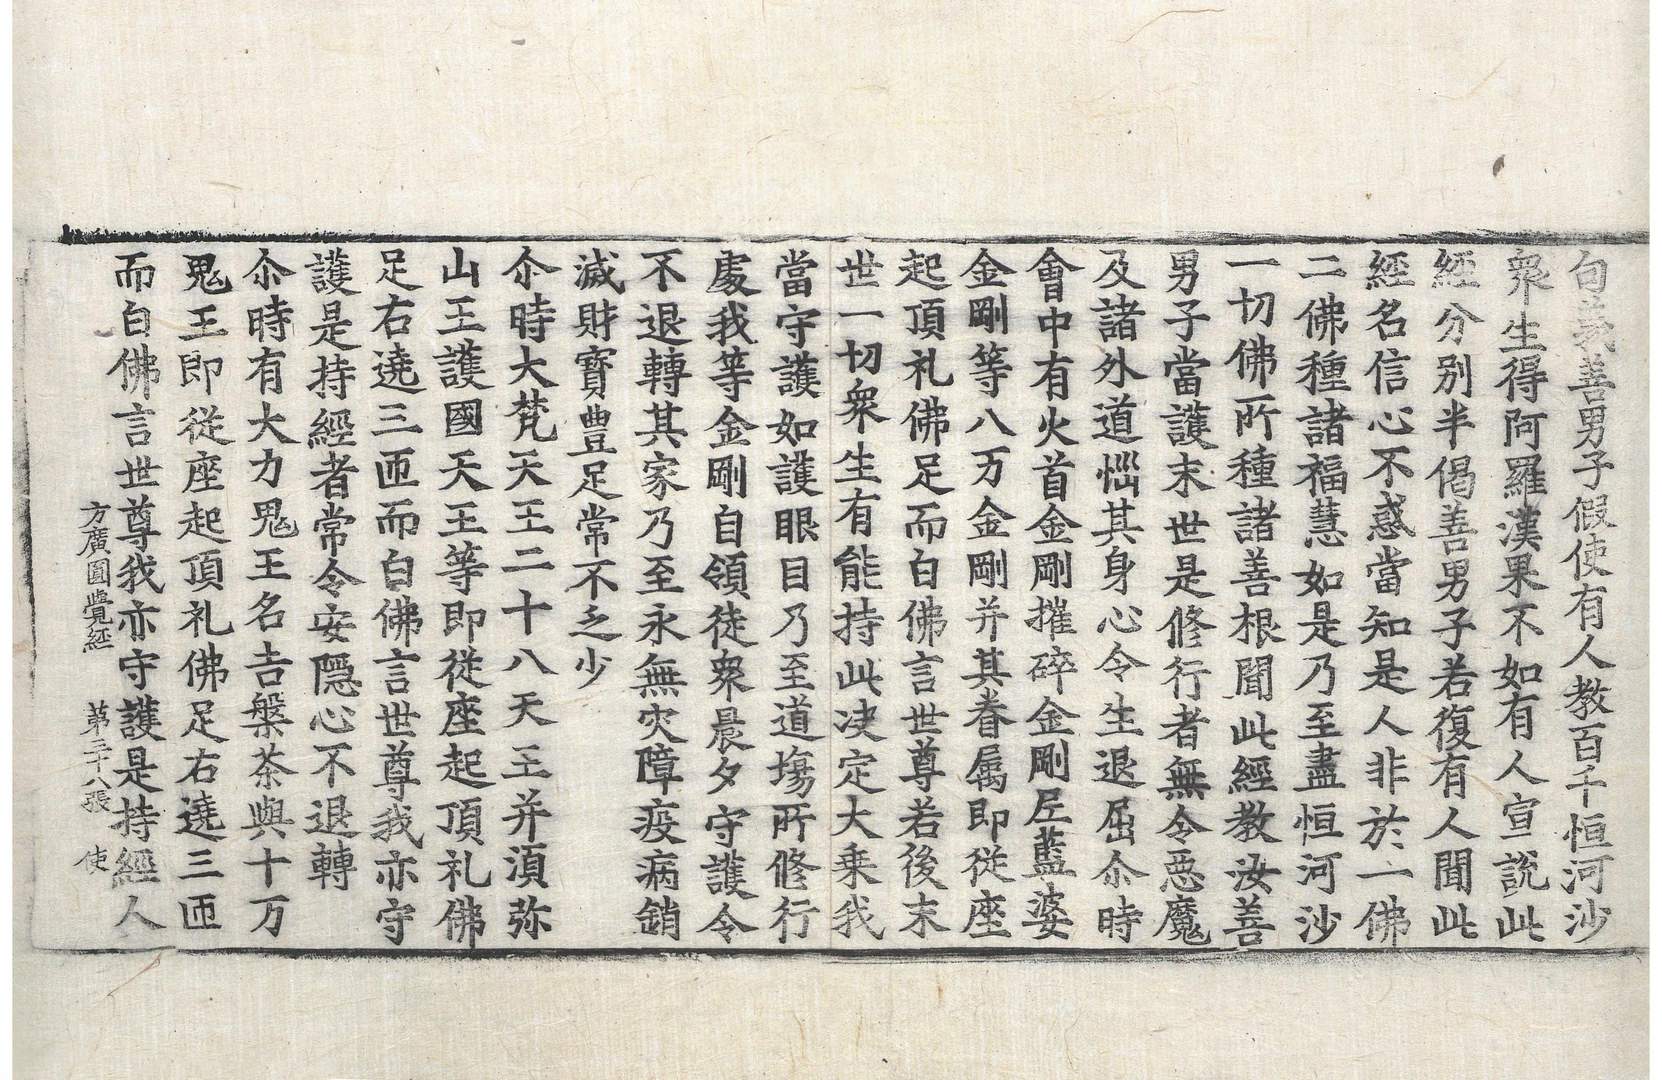 句義善男子假使有人教百千恒河沙
衆生得阿羅漢果不如有人宣說此
經分別半偈善男子若復有人聞此
經名信心不惑當知是人非於一佛
二佛種諸福慧如是乃至盡恒河沙
一切佛所種諸善根聞此經教汝善
男子當護末世是修行者無令惡魔
及諸外道惱其身心令生退屈尒時
會中有火首金剛摧碎金剛尼藍婆
金剛等八万金剛并其眷屬即從座
起頂礼佛足而白佛言世尊若後末
世一切衆生有能持此決定大乘我
當守護如護眼目乃至道場所修行
處我等金剛自領徒衆晨夕守護令
不退轉其家乃至永無灾障疫病銷
滅財寶豊足常不乏少
尒時大梵天王二十八天王并須弥
山王護國天王等即從座起頂礼佛
足右遶三匝而白佛言世尊我亦守
護是持經者常令安隱心不退轉
尒時有大力鬼王名吉槃荼與十万
鬼王即從座起頂礼佛足右遶三匝
而白佛言世尊我亦守護是持經人
方廣圓覺經 第二十八張 使